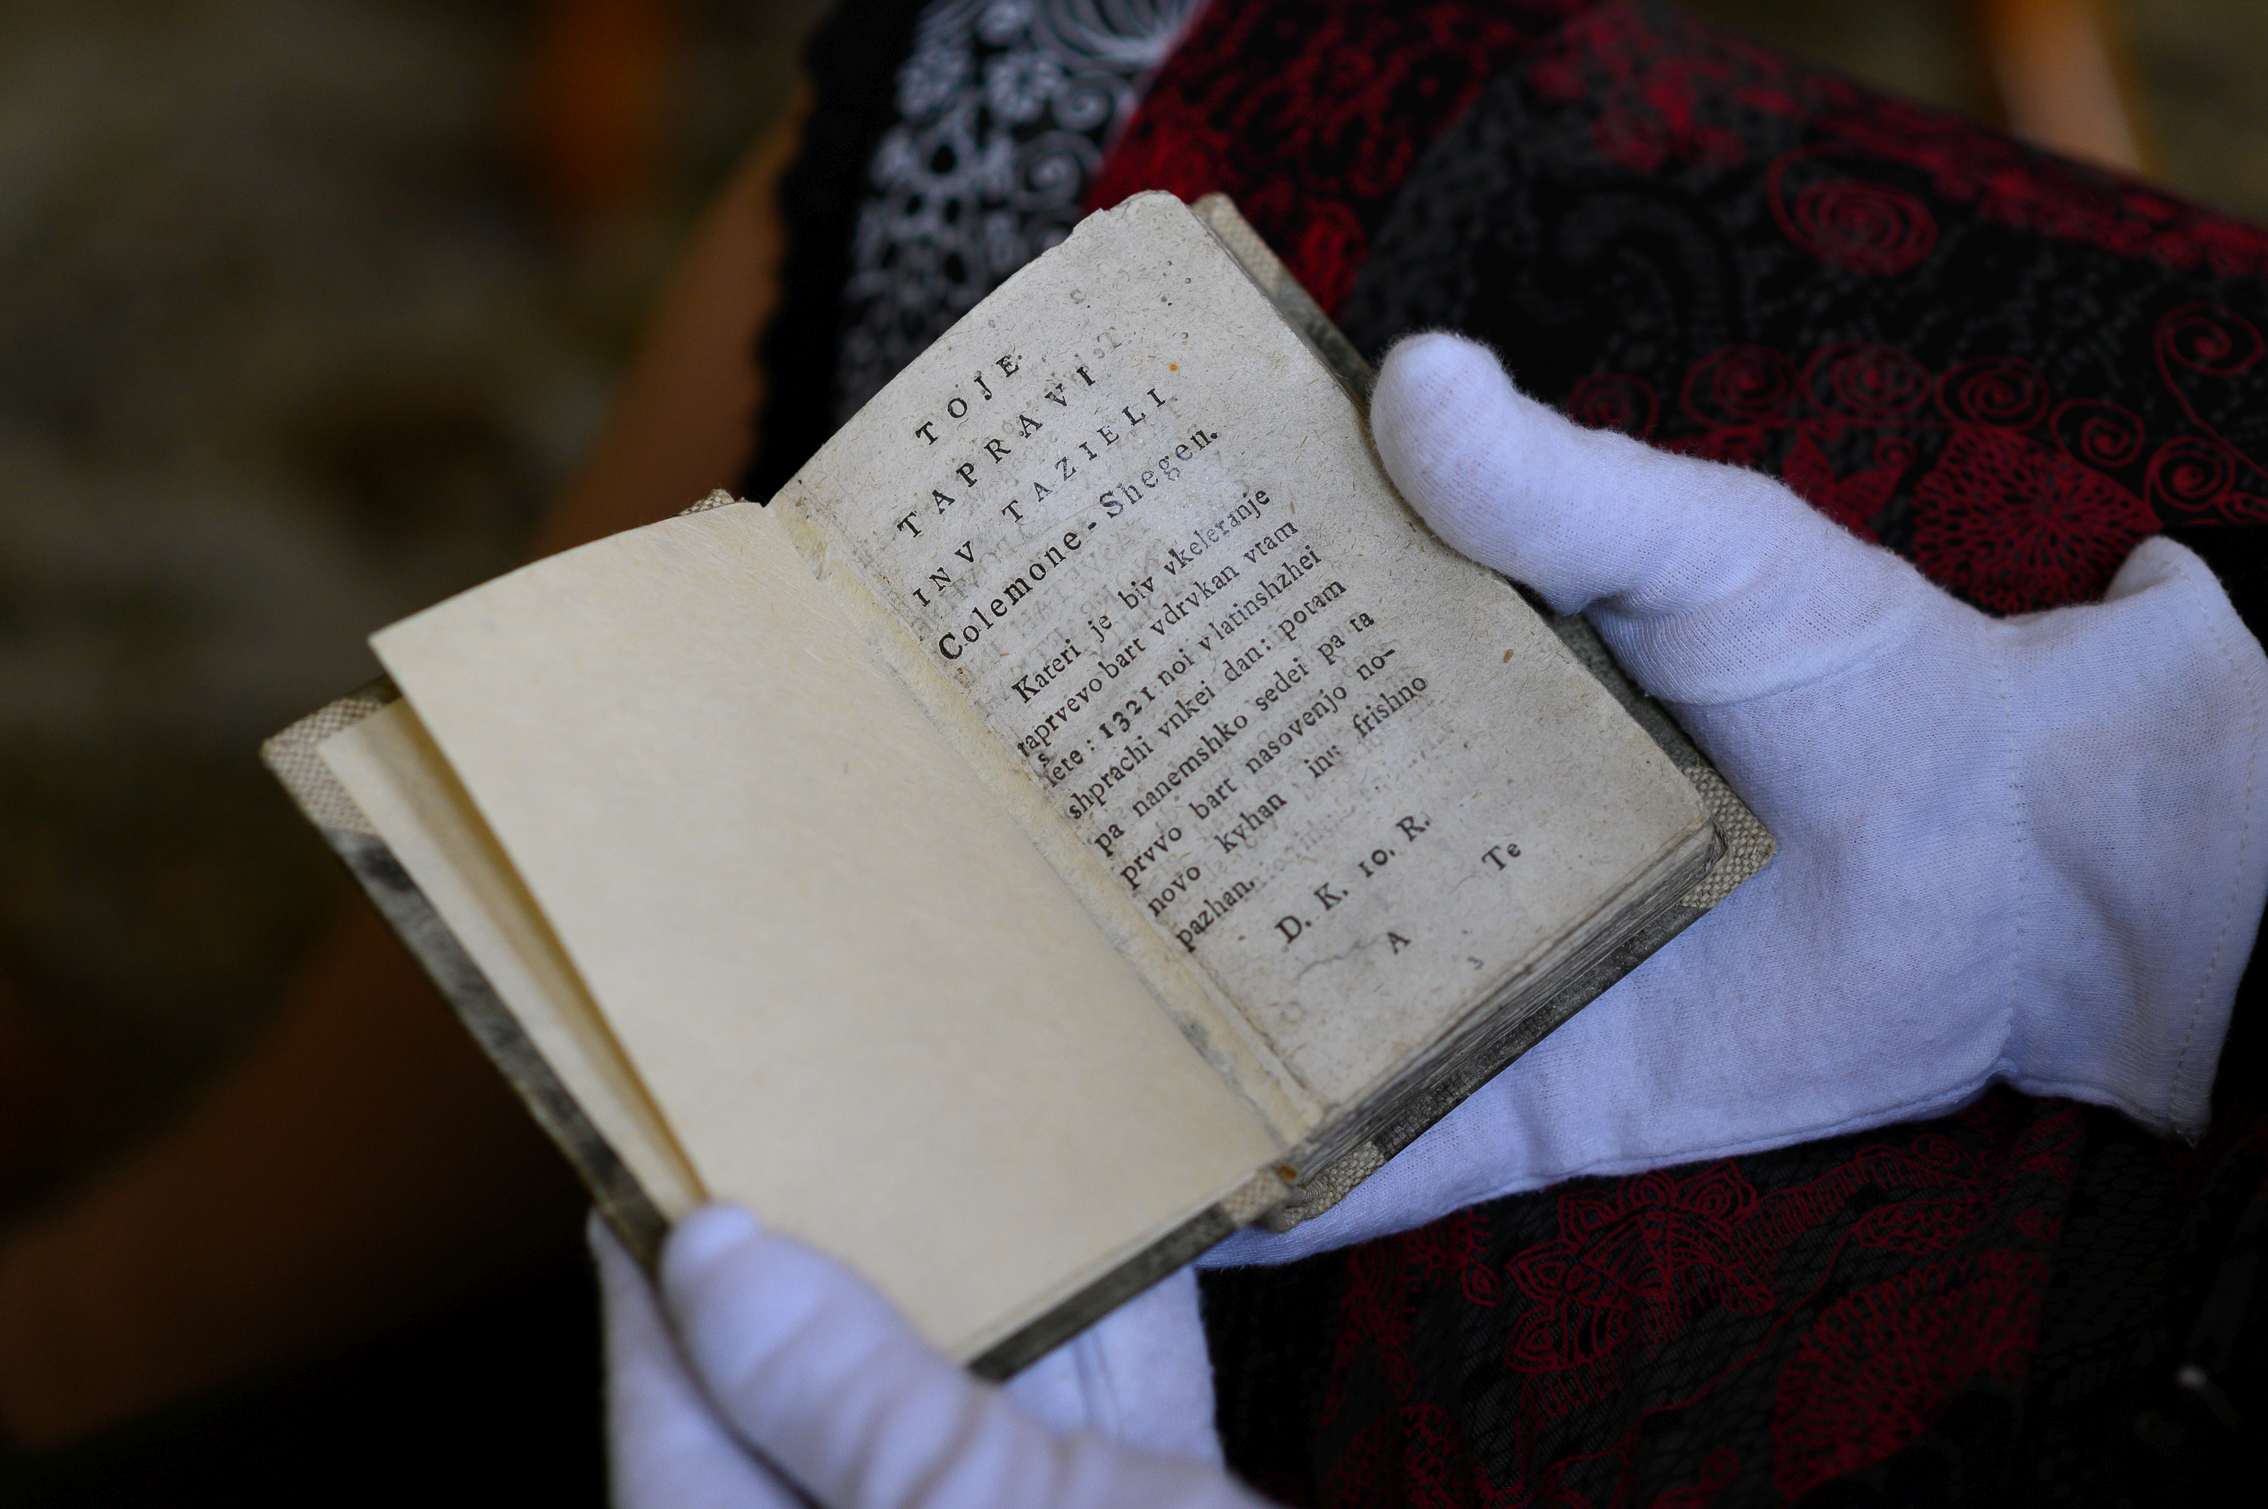 TOJE
TAPRAVI
INV TAZIELI
Colemone-Shegen.
Kateri je biv vkeleranje
taprvevo bart vdrvkan vtam
lete: 1321 noi v latinshzhei
shprachi vnkei dan: potam
pa nanemshko sedei pa ta
prvvo bart nasovenjo no-
novo kvhan inv frishno
pazhan.
D. K. 10. R.
A 3 Te